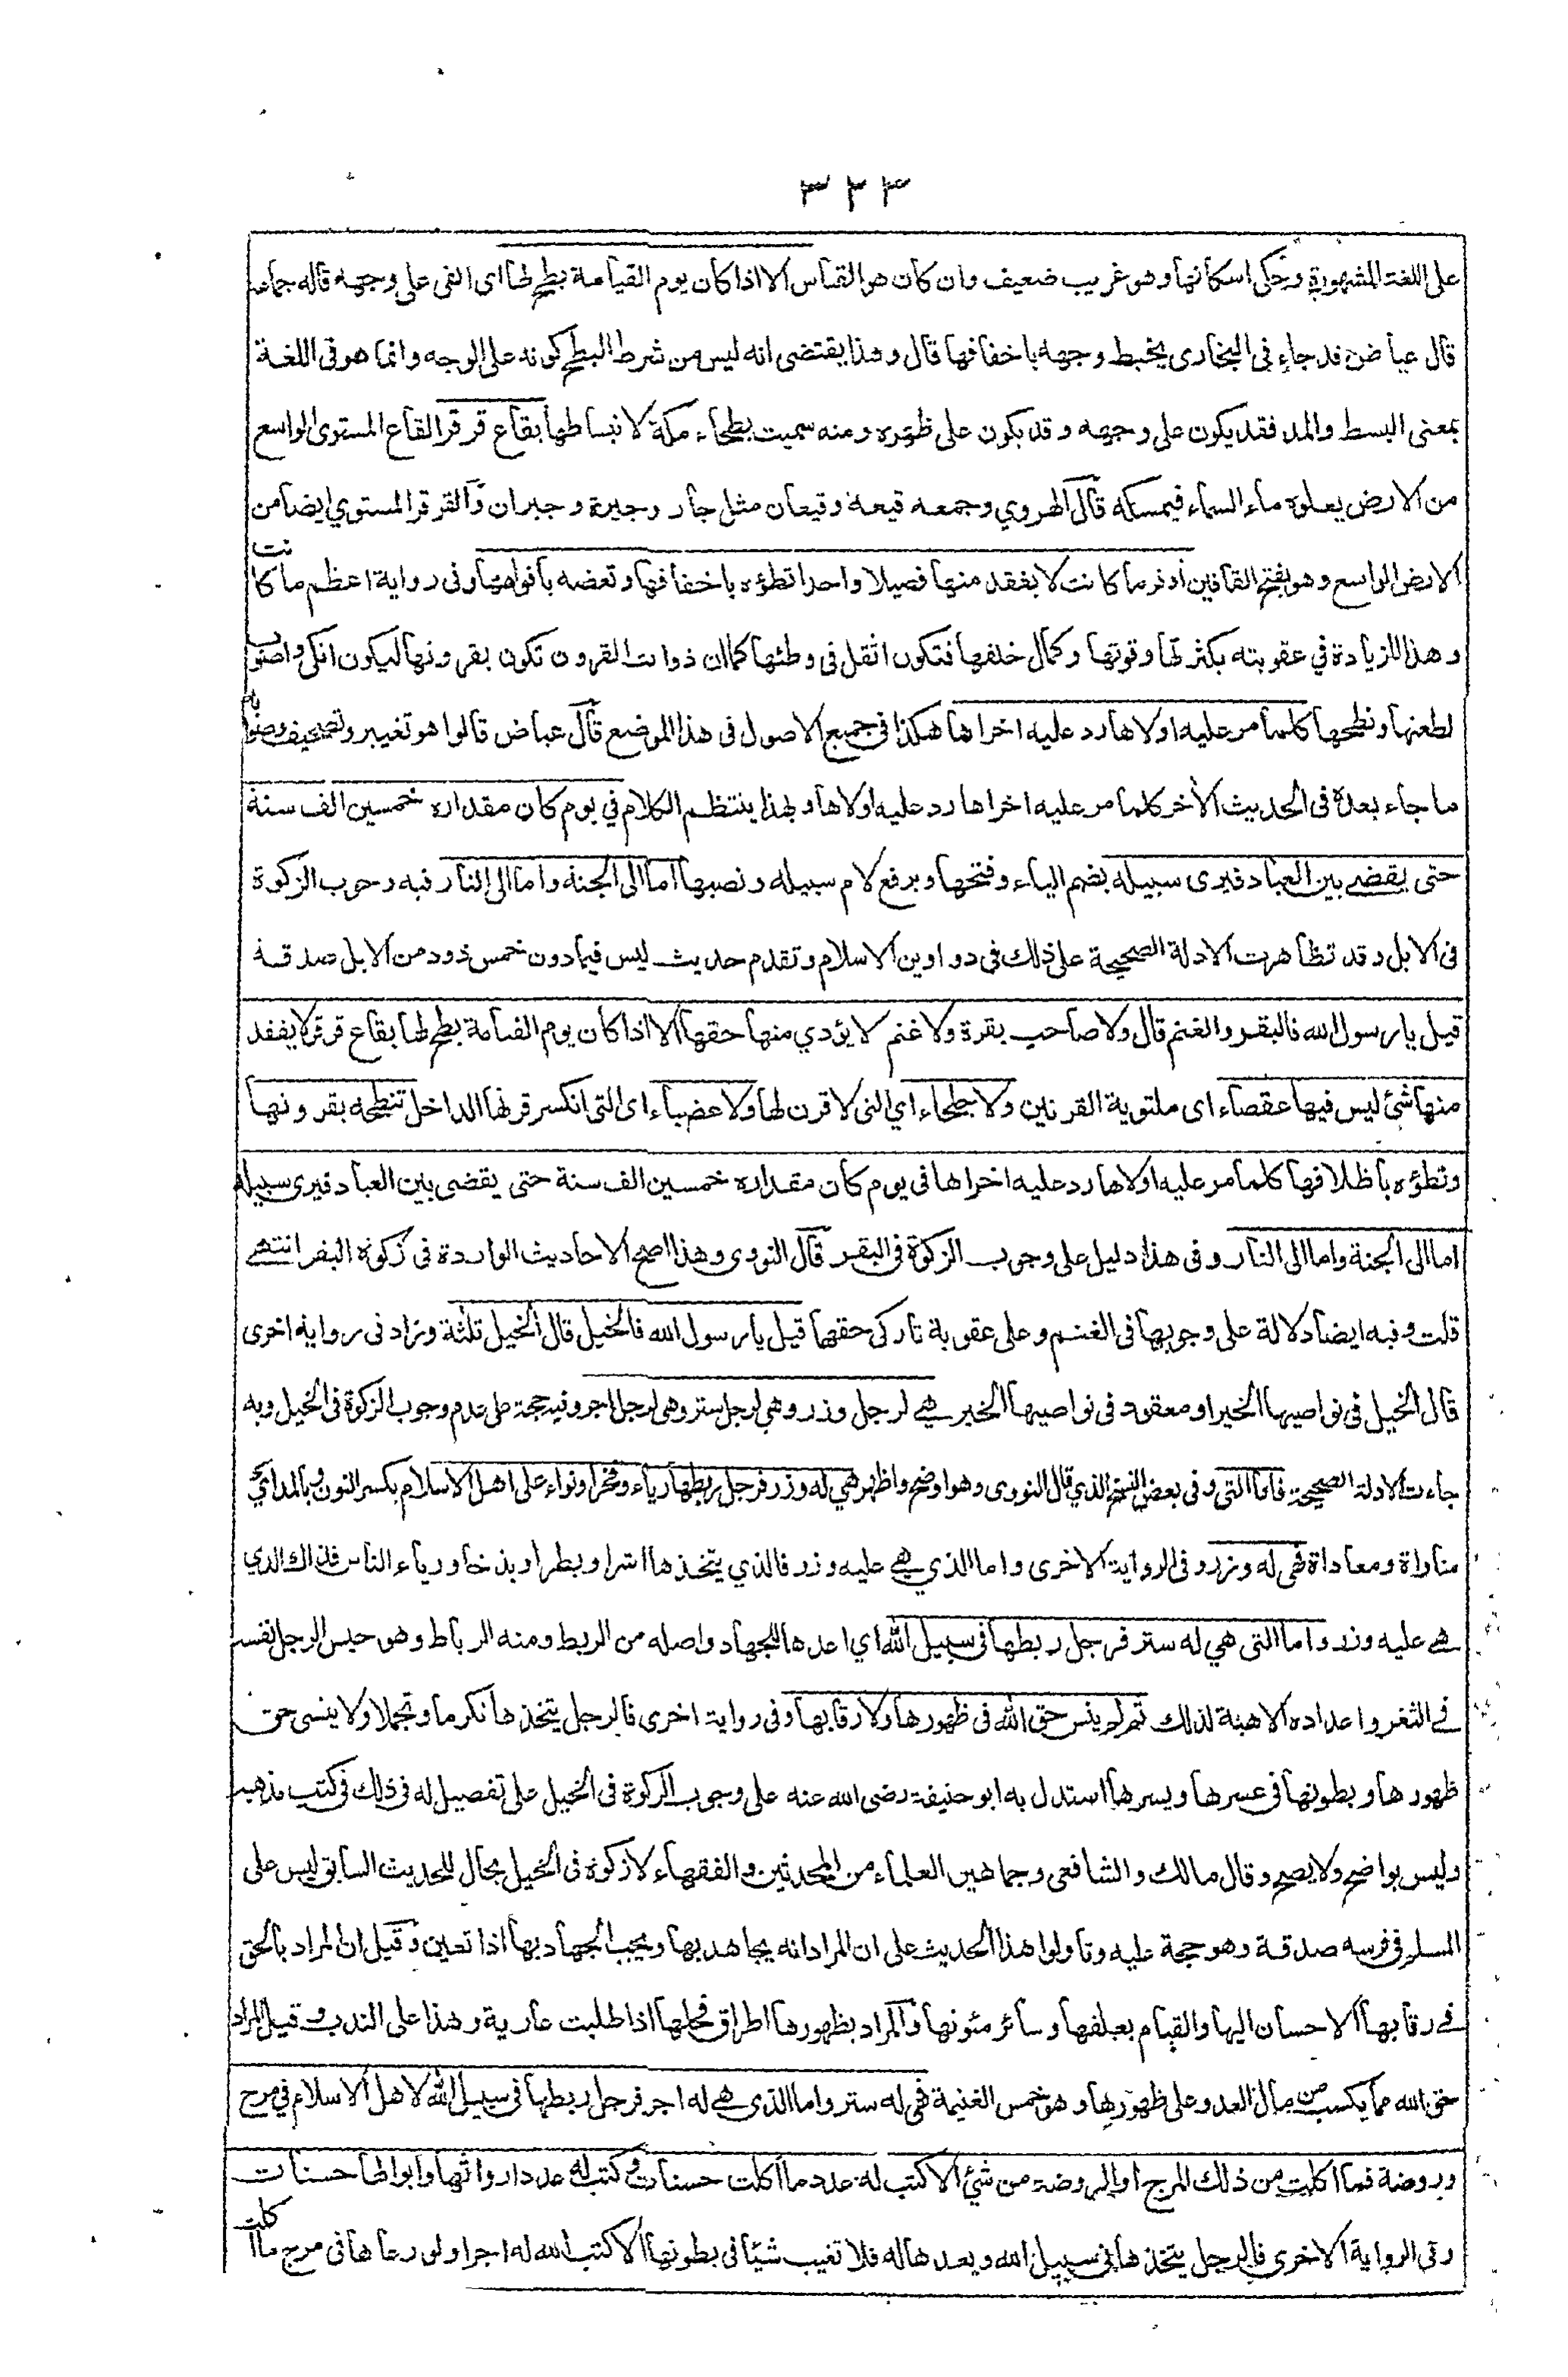 ٣٢٣
على اللغة المشهورة وحكى اسكانها وهو غريب ضعيف وان كان هو القياس الا اذا كان يوم القيامة بطح لها اى القى على وجهه قاله جماعة
قال عياض قد جاء فى البخارى يخبط وجهه باخفافها قال وهذا يقتضى انه ليس من شرط البطح كونه على الوجه وانما هو فى اللغة
بمعنى البسط والمد فقد يكون على وجهه وقد يكون على ظهره ومنه سميت بطحاء مكة لانبساطها بقاع قرقر القاع المستوى الواسع
من الارض يعلوه ماء السماء فيمسكه قال الهروي وجمعه قيعة وقيعان مثل جار وجيرة وجيران والقرقر المستوي ايضا من
الارض الواسع وهو بفتح القافين أوفر ما كانت لا يفقد منها فصيلا واحدا تطؤه باخفافها وتعضه بافواهها وفى رواية اعظم ما كانت
وهذا للزيادة في عقوبته بكثرتها وقوتها وكمال خلقها فتكون اثقل فى وطئها كما ان ذوات القرون تكون بقرونها ليكون انكى واصوب
لطعنها ونطحها كلما مر عليه اولاها رد عليه اخراها هكذا فى جميع الاصول فى هذا الموضع قال عياض قالوا هو تغيير وتصحيف وصوابه
ما جاء بعده فى الحديث الآخر كلما مر عليه اخراها رد عليه اولاها وبهذا ينتظم الكلام في يوم كان مقداره خمسين الف سنة
حتى يقضے بين العباد فيرى سبيله بضم الياء وفتحها وبرفع لام سبيله ونصبها اما الى الجنة واما الى النار فيه وجوب الزكوة
فى الابل وقد تظاهرت الادلة الصحيحة على ذلك فى دواوين الاسلام وتقدم حديث ليس فيما دون خمس ذود من الابل صدقة
قيل يارسول الله فالبقر والغنم قال ولا صاحب بقرة ولا غنم لا يؤدي منها حقها الا اذا كان يوم القيامة بطح لها بقاع قرقر لا يفقد
منها شئ ليس فيها عقصاء اى ملتوية القرنين ولا جلحاء اي التى لا قرن لها ولا عضباء اى التى انكسر قرنها الداخل تنطحه بقرونها
وتطؤه باظلافها كلما مر عليه اولاها رد عليه اخراها فى يوم كان مقداره خمسين الف سنة حتى يقضى بين العباد فيرى سبيله
اما الى الجنة واما الى النار وفى هذا دليل على وجوب الزكوة فى البقر قال النووى وهذا اصح الاحاديث الواردة فى زكوة البقر انتهے
قلت وفيه ايضا دلالة على وجوبها فى الغنم وعلى عقوبة تاركى حقها قيل يارسول الله فالخيل قال الخيل ثلثة وزاد فى رواية اخرى
قال الخيل فى نواصيها الخير او معقود فى نواصيها الخير هے لرجل وزر وهي لرجل ستر وهى لرجل اجر وفيه حجة على عدم وجوب الزكوة فى الخيل وبه
جاءت الادلة الصحيحة فاما التى وفى بعض النسخ الذي قال النووى وهو اوضح واظهر هي له وزر فرجل ربطها رياء وفخرا ونواء على اهل الاسلام بكسر النون وبالمد اي
مناواة ومعاداة فهى له وزر وفى الرواية الاخرى واما الذي هے عليه وزر فالذي يتخذها اشرا وبطرا وبذخا ورياء الناس فذاك الذي
هے عليه وزر واما التى هي له ستر فرجل ربطها فى سبيل الله اي اعدها للجهاد واصله من الربط ومنه الرباط وهو حبس الرجل نفسه
فے الثغر واعداده الاهبة لذلك ثم لم ينس حق الله فى ظهورها ولا رقابها وفى رواية اخرى فالرجل يتخذها تكرما وتجملا ولا ينسى حق
ظهورها وبطونها فى عسرها ويسرها استدل به ابو حنيفة رضى الله عنه على وجوب الزكوة فى الخيل على تفصيل له فى ذلك فى كتب مذهبه
وليس بواضح ولا يصح وقال مالك والشافعى وجماهير العلماء من المحدثين والفقهاء لا زكوة فى الخيل بحال للحديث السابق ليس على
المسلم فى فرسه صدقة وهو حجة عليه وتاولوا هذا الحديث على ان المراد انه يجاهد بها ويجب الجهاد بها اذا تعين وقيل ان المراد بالحق
فے رقابها الاحسان اليها والقيام بعلفها وسائر مئونها والمراد بظهورها اطراق فحلها اذا طلبت عارية وهذا على الندب وقيل المراد
حق الله مما يكسب من مال العدو على ظهورها وهو خمس الغنيمة فهى له ستر واما الذى هے له اجر فرجل ربطها فى سبيل الله لاهل الاسلام في مرج
وروضة فما اكلت من ذلك المرج او الروضة من شئ الا كتب له عدد ما اكلت حسنات وكتب له عدد ارواثها وابوالها حسنات
وفى الرواية الاخرى فالرجل يتخذها فى سبيل الله ويعدها له فلا تغيب شيئا فى بطونها الا كتب الله له اجرا ولو رعاها فى مرج ما اكلت